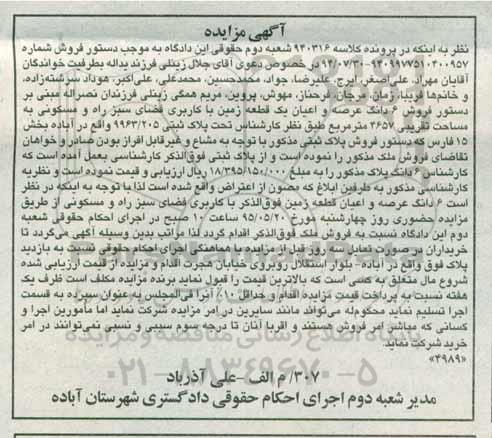 آگهی مزایده
نظر به اینکه در پرونده کلاسه ۹۴۰۳۱۶ شعبه دوم حقوقی این دادگاه به موجب دستور فروش شماره
۹۴۰۹۹۷۷۵۱۰۴۰۰۹۵۷-۹۴/۰۷/۳۰ در خصوص دعوی آقای جلال زینلی فرزند یداله بطرفیت خواندگان
آقایان مهراد، علی‌اصغر، ایرج، علیرضا، جواد، محمدحسین، محمدعلی، علی‌اکبر، هوداد سرشته‌زاده،
و خانم‌ها فریبا، زمان، مرجان، فرحناز، مهوش، پروین، مریم همگی زینلی فرزندان نصراله مبنی بر
دستور فروش ۶ دانگ عرصه و اعیان یک قطعه زمین با کاربری فضای سبز راه و مسکونی به
مساحت تقریبی ۳۶۵۷ مترمربع طبق نظر کارشناس تحت پلاک ثبتی ۹۹۶۳/۲۰۵ واقع در آباده بخش
۱۵ فارس که دستور فروش پلاک ثبتی مذکور با توجه به مشاع و غیرقابل افراز بودن صادر و خواهان
تقاضای فروش ملک مذکور را نموده است و از پلاک ثبتی فوق‌الذکر کارشناسی بعمل آمده است که
کارشناس ۶ دانگ پلاک مذکور را به مبلغ ۱۸/۳۹۵/۱۵۰/۰۰۰ ریال ارزیابی و قیمت نموده است و نظریه
کارشناس مذکور به طرفین ابلاغ که مصون از اعتراض واقع شده است لذا با توجه به اینکه در نظر
است ۶ دانگ عرصه و اعیان قطعه زمین فوق‌الذکر با کاربری فضای سبز راه و مسکونی از طریق
مزایده حضوری روز چهارشنبه مورخ ۹۵/۰۵/۲۰ ساعت ۱۰ صبح در اجرای احکام حقوقی شعبه
دوم این دادگاه نسبت به فروش ملک فوق‌الذکر اقدام گردد لذا مراتب بدین وسیله آگهی می‌گردد تا
خریداران در صورت تمایل سه روز قبل از مزایده با هماهنگی اجرای احکام حقوقی نسبت به بازدید
پلاک فوق واقع در آباده- بلوار استقلال روبروی خیابان هجرت اقدام و مزایده از قیمت ارزیابی شده
شروع مال متعلق به کسی است که بالاترین قیمت را قبول نماید برنده مزایده مکلف است ظرف یک
هفته نسبت به پرداخت قیمت مزایده اقدام و حداقل ۱۰٪ آنرا فی‌المجلس به عنوان سپرده به قسمت
اجرا تسلیم نماید محکوم‌له می‌تواند مانند سایرین در امر مزایده شرکت نماید اما مأمورین اجرا و
کسانی که مباشر امر فروش هستند و اقربا آنان تا درجه سوم سببی و نسبی نمی‌توانند در امر
خرید شرکت نماید.
«۴۹۸۹»
۳۰۷/ م الف -علی آذرباد
مدیر شعبه دوم اجرای احکام حقوقی دادگستری شهرستان آباده
۰۲۱-۸۸۳۴۹۶۷۰-۵